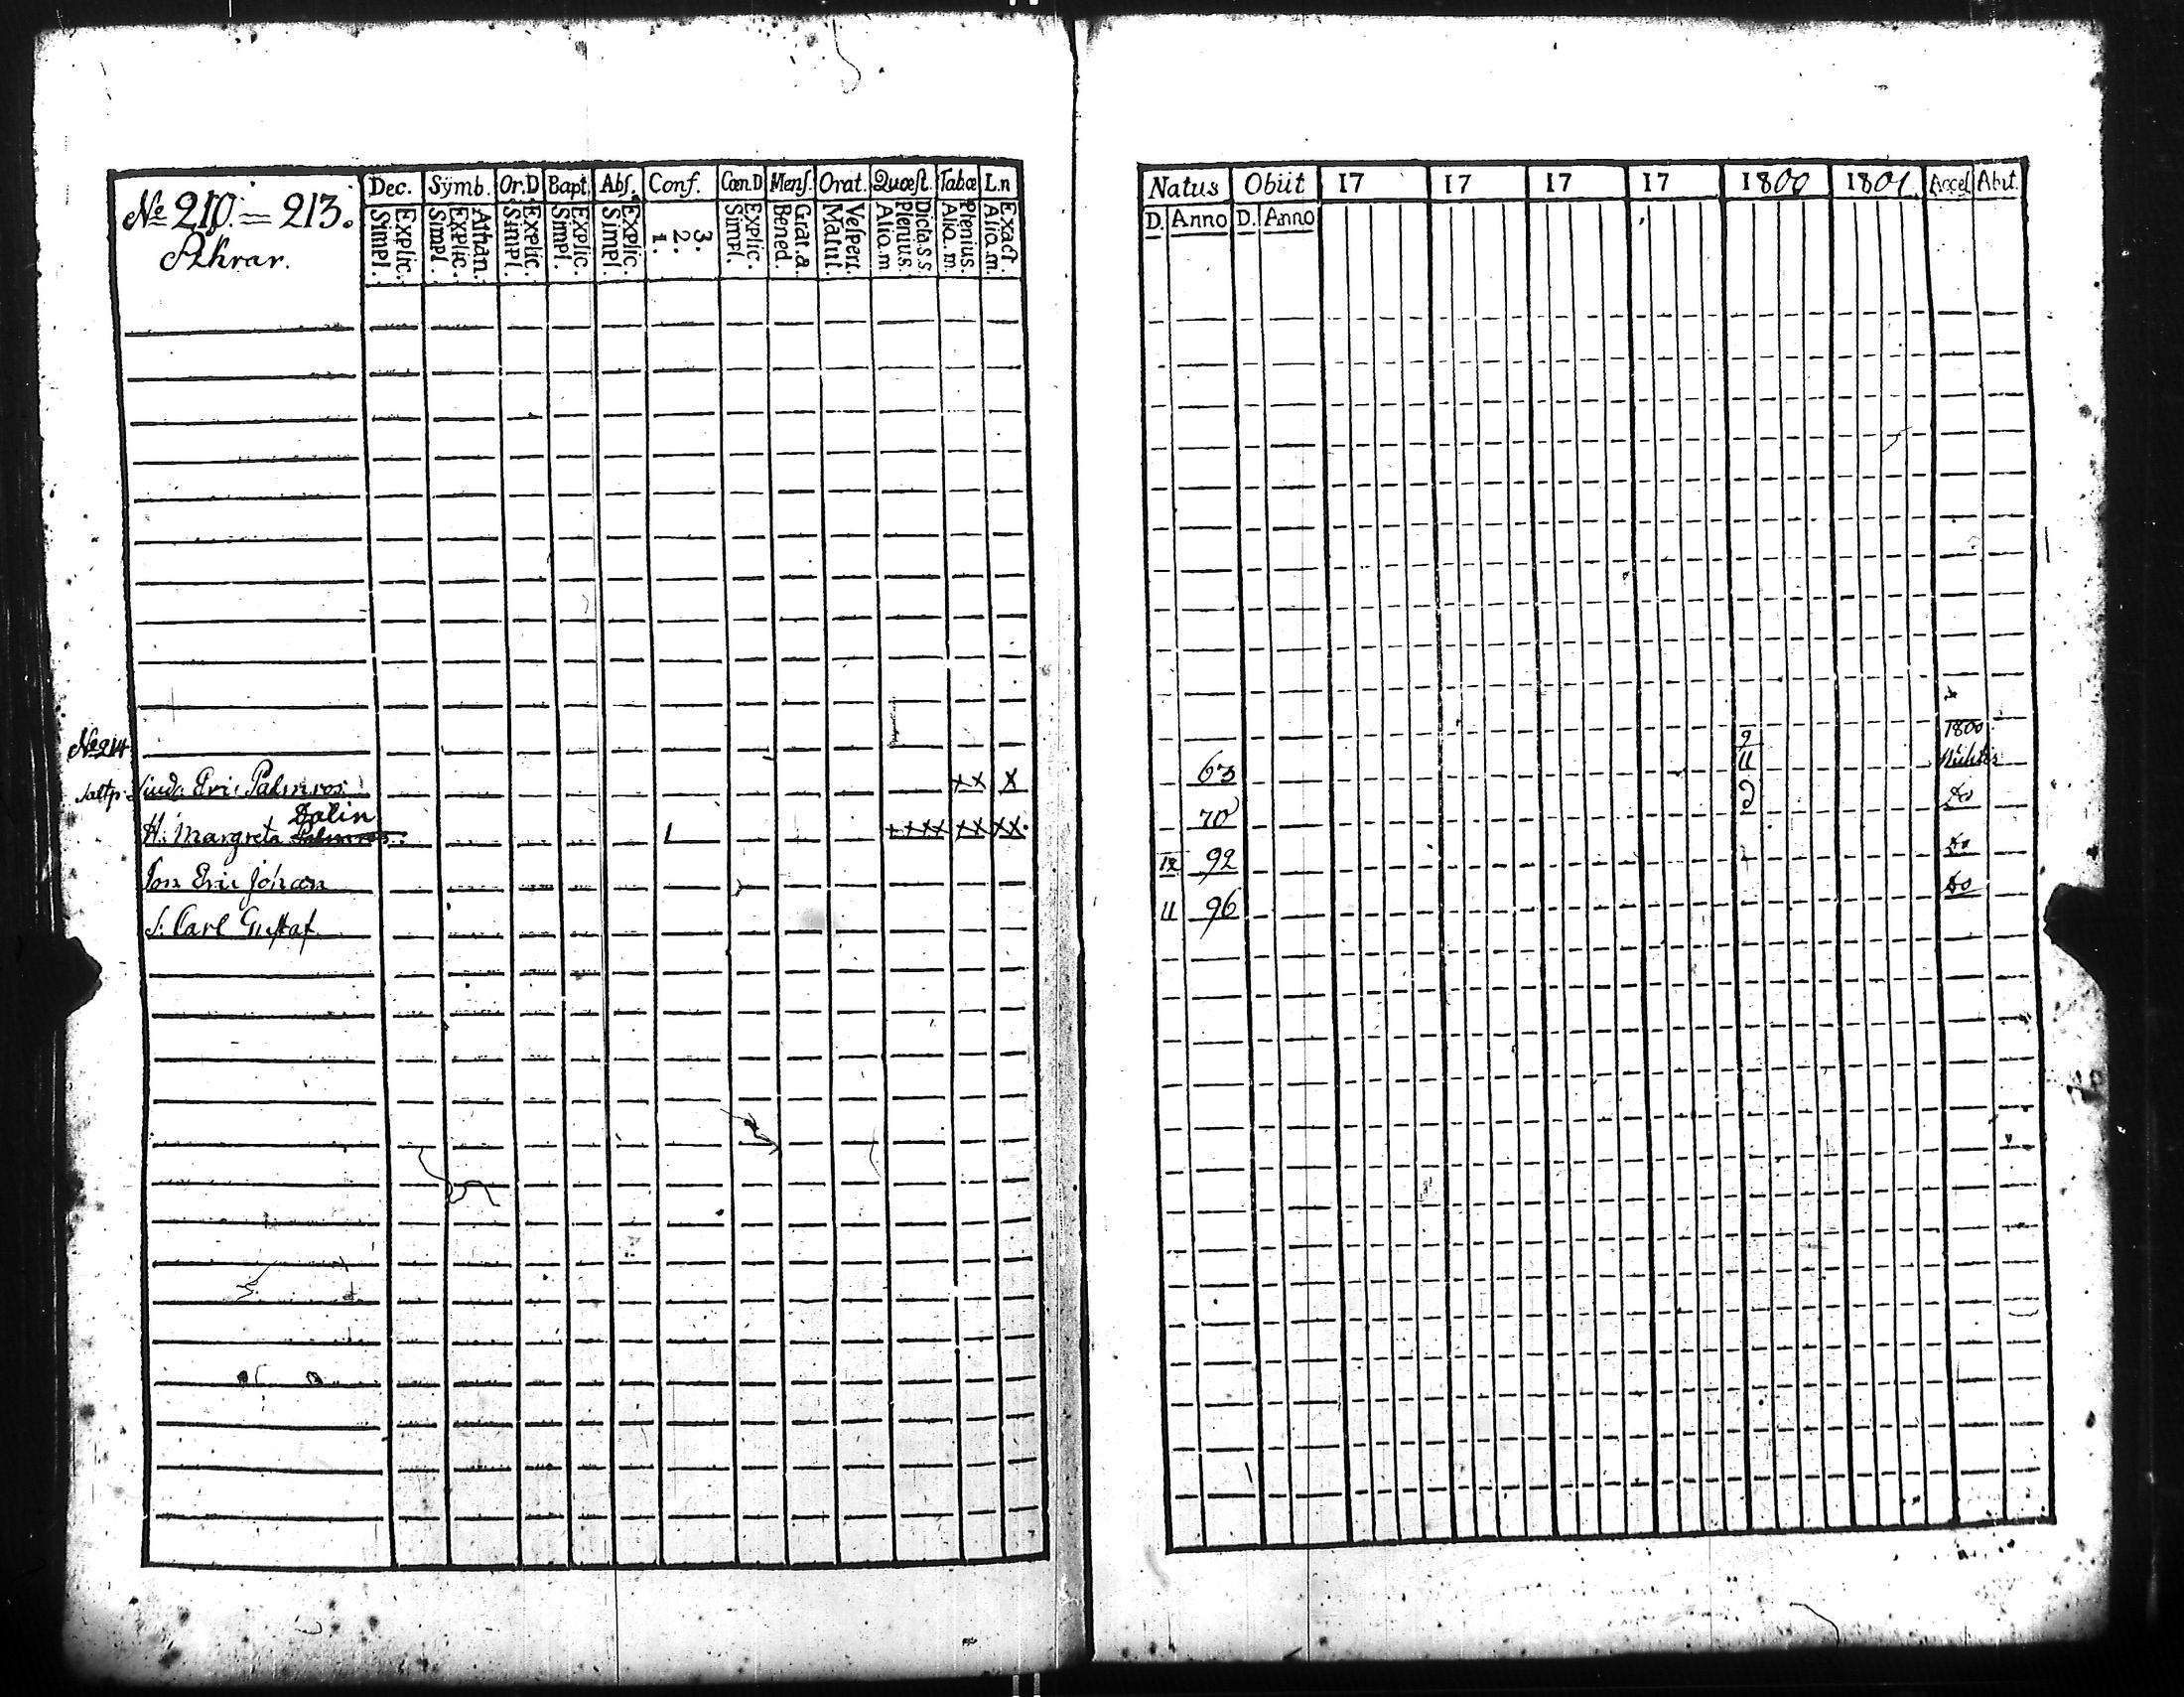 Nº 210. = 213.
Åkrar.
Dec. Symb. Or.D Bapt. Abs. Conf. Cœn.D Mens. Orat. Quæst. Tabæ L.n
Explic. Simpl. Athan. Explic. Simpl. Explic. Simpl. Explic. Simpl. Explic. Simpl. 3. 2. 1. Explic. Simpl. Grat.a. Bened. Vespert. Matut. Dicta.S.S. Plenius. Alio.m Plenius. Alio.m. Exact. Alio.m.
Natus Obiit 17 17 17 17 1800 1801 Accel. Abit.
D. Anno D. Anno
Nº 214
Eric Palmros x x x
Dalin
H. Margreta Palmros. x x x x x x x x
Son Eric Johan
S. Carl Gustaf
9 1800
63 11
70 2 Do
12 92 Do
11 96 Do